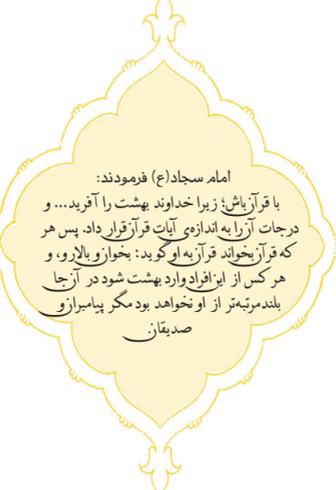 امام سجاد(ع) فرمودند:
با قرآن باش؛ زیرا خداوند بهشت را آفرید... و
درجات آن را به اندازه‌ی آیات قرآن قرار داد. پس هر
که قرآن بخواند قرآن به او گوید: بخوان و بالا رو، و
هر کس از این افراد وارد بهشت شود در آن جا
بلندمرتبه‌تر از او نخواهد بود مگر پیامبران و
صدیقان.